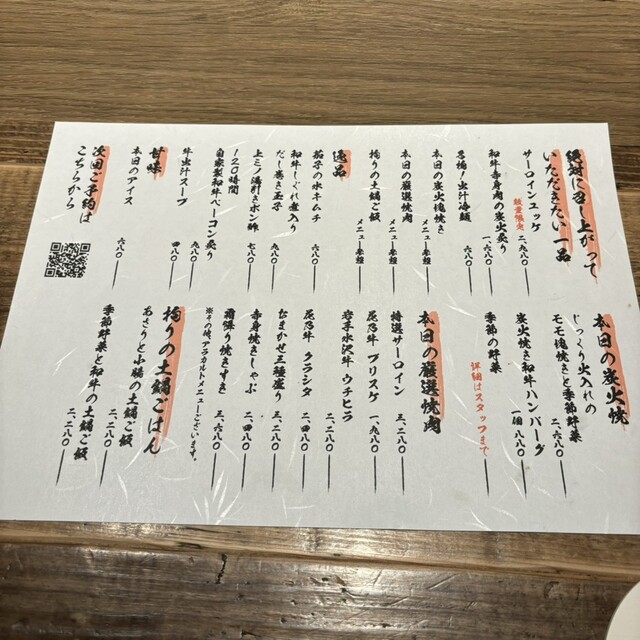 絶対に召し上がって
いただきたい一品
サーロインユッケ
数量限定 二、九八〇
和牛赤身肉の炭火炙り
一、六八〇
名物!出汁冷麺
六八〇
本日の炭火塊焼き
メニュー参照
本日の厳選焼肉
メニュー参照
拘りの土鍋ご飯
メニュー参照
逸品
茄子の水キムチ
六八〇
和牛しぐれ煮入り
だし巻き玉子
九八〇
上ミノ湯引きポン酢
七八〇
120時間
自家製和牛ベーコン炙り
九八〇
牛出汁スープ
四八〇
甘味
本日のアイス
六八〇
次回ご予約は
こちらから
本日の炭火焼
じっくり火入れの
モモ塊焼きと季節野菜
二、六八〇
炭火焼き和牛ハンバーグ
一個 八八〇
季節の野菜
詳細はスタッフまで
本日の厳選焼肉
特選サーロイン
三、二八〇
花乃牛 ブリスケ
一、九八〇
岩手水沢牛 ウチヒラ
二、二八〇
花乃牛 クラシタ
二、二八〇
おまかせ三種盛り
三、二八〇
赤身焼きしゃぶ
二、四八〇
霜降り焼きすき
三、六八〇
※その他アラカルトメニューございます。
拘りの土鍋ごはん
あさりと小腸の土鍋ご飯
二、二八〇
季節野菜と和牛の土鍋ご飯
二、二八〇